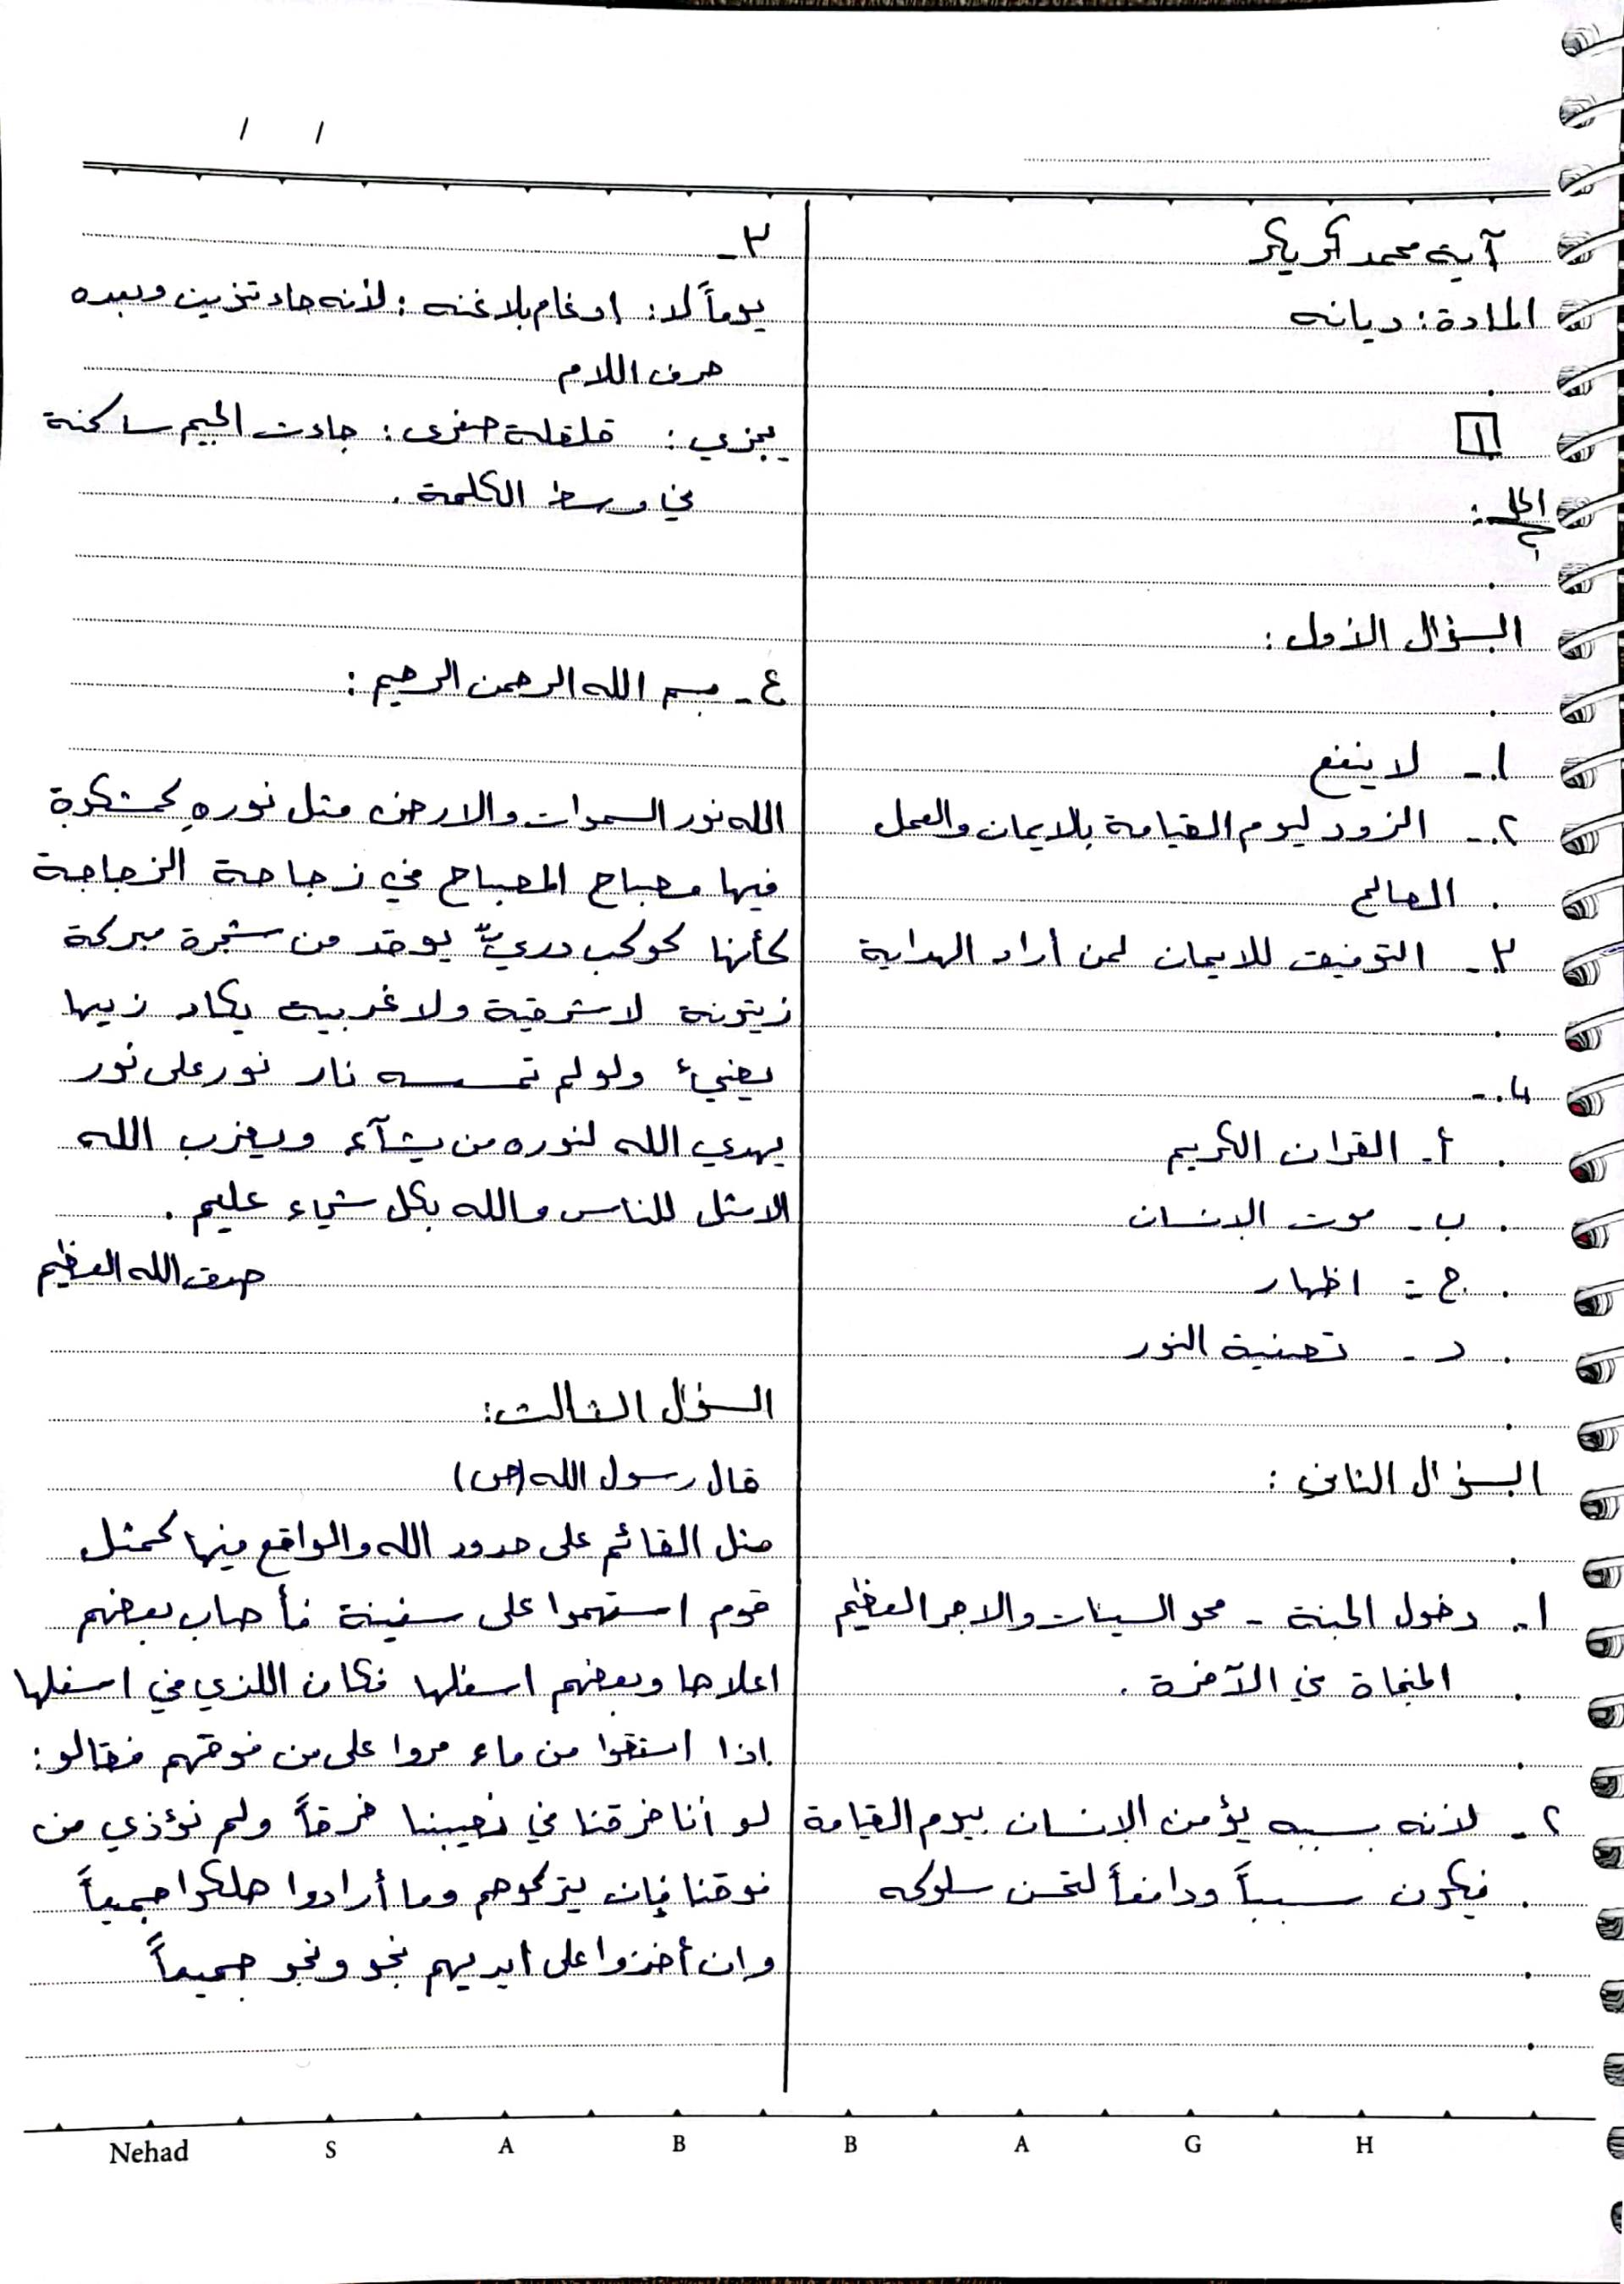 / /
آية محمد
المادة: ديانه
١
الحل:
السؤال الأول:
١- لا ينفع
٢- الزود ليوم القيامة بالايمان والعمل
الصالح
٣- التوفيق للايمان لمن أراد الهداية
٤-
أ- القران الكريم
ب- موت الإنسان
ج- اظهار
د- تصفية النور
السؤال الثاني:
١- دخول الجنة - محو السيئات والاجر العظيم
المنجاة في الآخرة.
٢- لأنه بسببه يؤمن الإنسان بيوم القيامة
فيكون سبباً ودافعاً لتحسن سلوكه
٣-
يوماً لا: ادغام بلا غنه: لأنه جاء تنوين وبعده
حرف اللام
يجزي: قلقلة صغرى: جاءت الجيم ساكنة
في وسط الكلمة.
٤- بسم الله الرحمن الرحيم:
الله نور السموات والارض مثل نورهِ كمشكوة
فيها مصباح المصباح في زجاجة الزجاجة
كأنها كوكب دريٌّ يوقد من شجرة مبركة
زيتونة لا شرقية ولا غربية يكاد زيها
يضيء ولو لم تمسسه نار نور على نور
يهدي الله لنوره من يشآء ويضرب الله
الامثل للناس والله بكل شيء عليم.
صدق الله العظيم
السؤال الثالث:
قال رسول الله (ص)
مثل القائم على حدود الله والواقع فيها كمثل
قوم استهموا على سفينة فأصاب بعضهم
اعلاها وبعضهم اسفلها فكان اللذي في اسفلها
إذا استقوا من ماء مروا على من فوقهم فقالو:
لو أنا خرقنا في نصيبنا خرقاً ولم نؤذي من
فوقنا فإن يتركوهم وما أرادوا هلكوا جميعاً
وان أخذوا على ايديهم نجو ونجو جميعاً
Nehad S A B B A G H